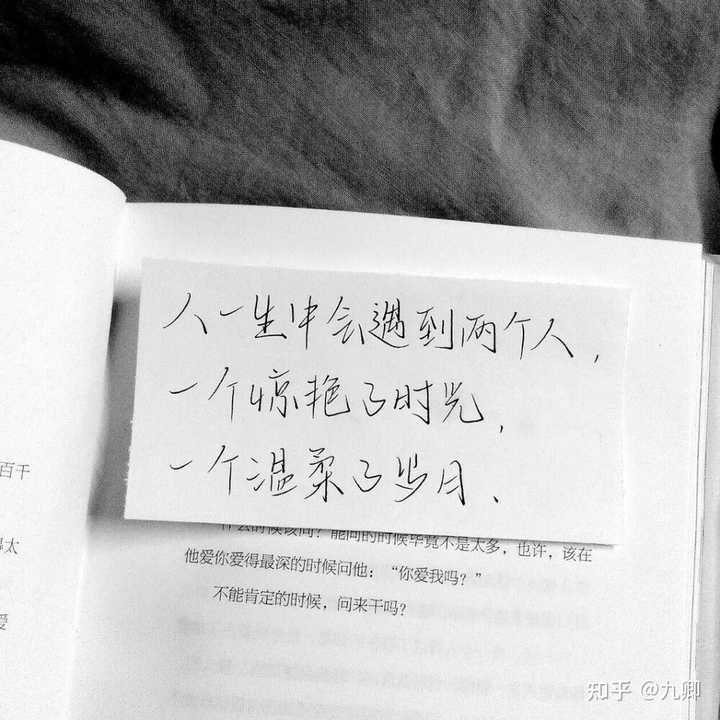 人一生中会遇到两个人,
一个惊艳了时光,
一个温柔了岁月、
什么时候该问？能问的时候毕竟不是太多，也许，该在
他爱你爱得最深的时候问他：“你爱我吗？”
不能肯定的时候，问来干吗？
百千
太
爱
知乎 @九卿